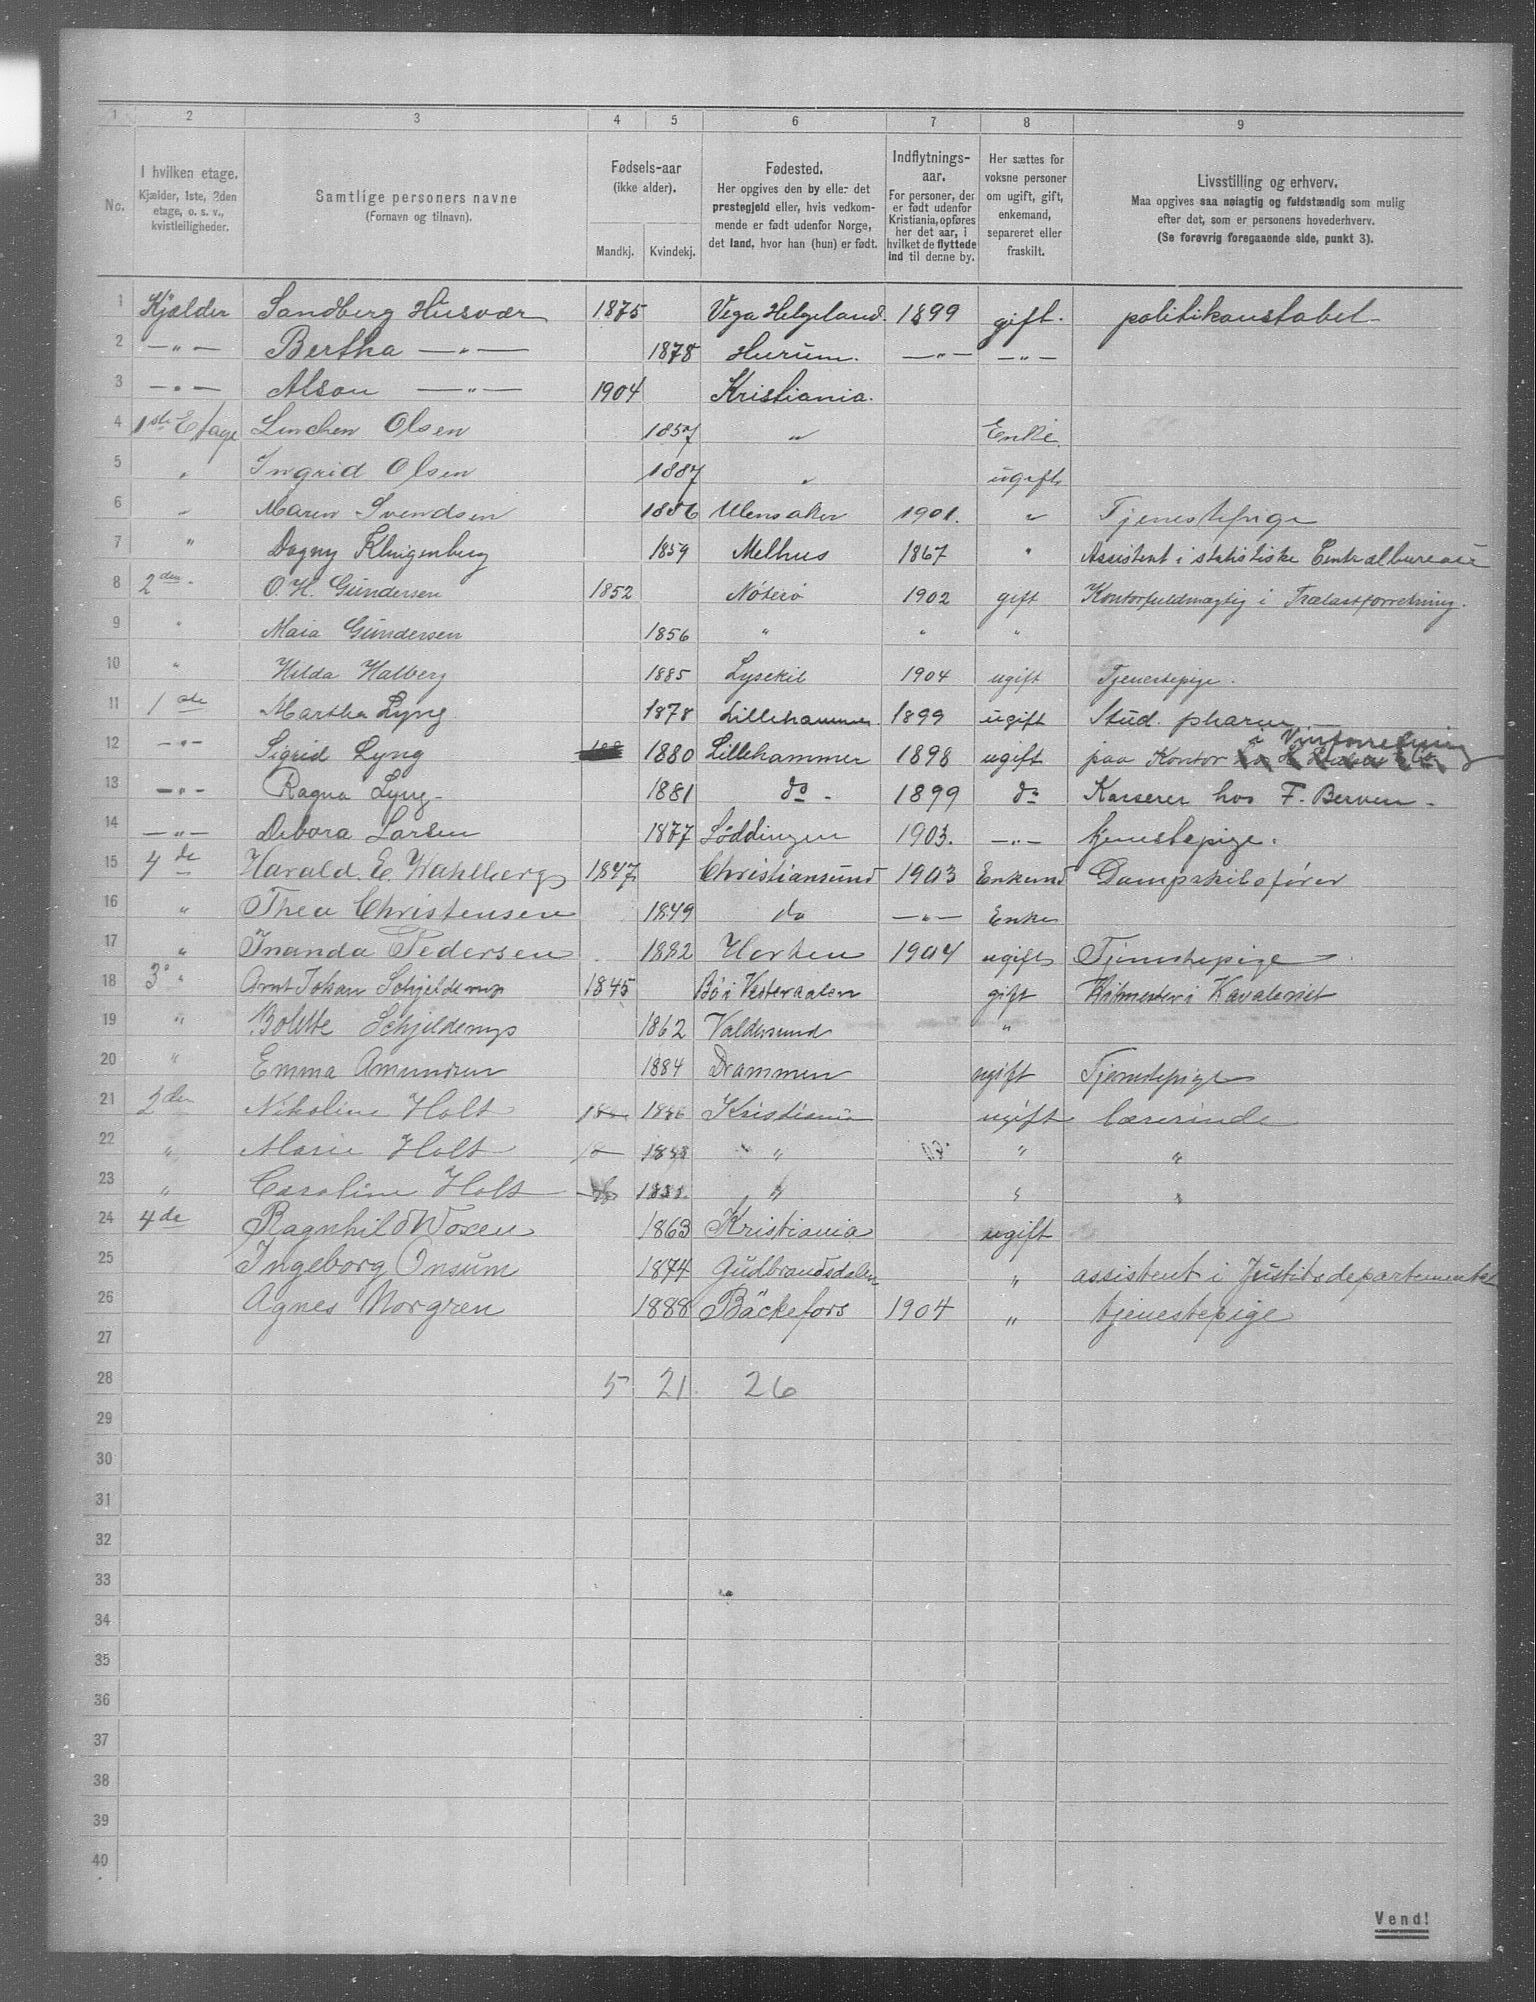 1 2 3 4 5 6 7 8 9
No.
I hvilken etage.
Kjælder, 1ste, 2den
etage, o. s. v.,
kvistleiligheder.
Samtlige personers navne
(Fornavn og tilnavn).
Fødsels-aar
(ikke alder).
Mandkj. Kvindekj.
Fødested.
Her opgives den by eller det
prestegjeld eller, hvis vedkom-
mende er født udenfor Norge,
det land, hvor han (hun) er født.
Indflytnings-
aar.
For personer, der
er født udenfor
Kristiania, opføres
her det aar, i
hvilket de flyttede
ind til denne by.
Her sættes for
voksne personer
om ugift, gift,
enkemand,
separeret eller
fraskilt.
Livsstilling og erhverv.
Maa opgives saa nøiagtig og fuldstændig som mulig
efter det, som er personens hovederhverv.
(Se forøvrig foregaaende side, punkt 3).
1 Kjælder Sandberg Husvær 1875 Vega Helgeland. 1899 gift. politikonstabel
2 —"— Bertha —"— 1878 Hurum. —"— —"—
3 —"— —"— 1904 Kristiania.
4 1ste Etage Linchen Olsen 1857 " Enke.
5 " Ingrid Olsen 1887 " ugift
6 " Maren Svendsen Ulensaker 1901. " Tjenestepige
7 " Dagny Klingenberg 1859 Melhus 1867 " Assistent i statistiske Centralbureau
8 2den O. H. Gundersen 1852 Nøterø 1902 gift Kontorfuldmægtig i Trælastforretning.
9 " Maia Gundersen 1856 " " "
10 " Hilda Halberg 1885 Lysekil 1904 ugift Tjenestepige.
11 1ste Martha Lyng 1878 Lillehammer. 1899 ugift Stud. pharm
12 —"— Sigrid Lyng 1880 Lillehammer 1898 ugift paa Kontor i
13 —"— Ragna Lyng 1881 do 1899 do Kasserer hos F. Berven
14 —"— Debora Larsen 1877 Løddingen 1903. —"— tjenestepige.
15 4de Harald. E. Wahlberg 1847 Christiansund 1903 Enkemd Dampskibsfører
16 " Thea Christensen 1849 do —"— Enke
17 " Inanda Pedersen 1882 Horten 1904 ugift Tjenestepige
18 3 " Arnt Johan Schjelderup 1845 Bø i Vesteraalen gift Ritmester i Kavaleriet
19 " Bolette Schjelderup 1862 Valdersund "
20 " Emma Amundsen 1884 Drammen ugift Tjenestepige
21 2den Nikoline Holt Kristiania ugift lærerinde
22 " Marie Holt " " "
23 " Caroline Holt " " "
24 4de Ragnhild Woxen 1863 Kristiania ugift
25 Ingeborg Onsum 1874 Gudbrandsdalen " assistent i Justitsdepartementet
26 Agnes Norgren 1888 Bäckefors 1904 " tjenestepige
27
28 5 21 26
29
30
31
32
33
34
35
36
37
38
39
40
Vend!